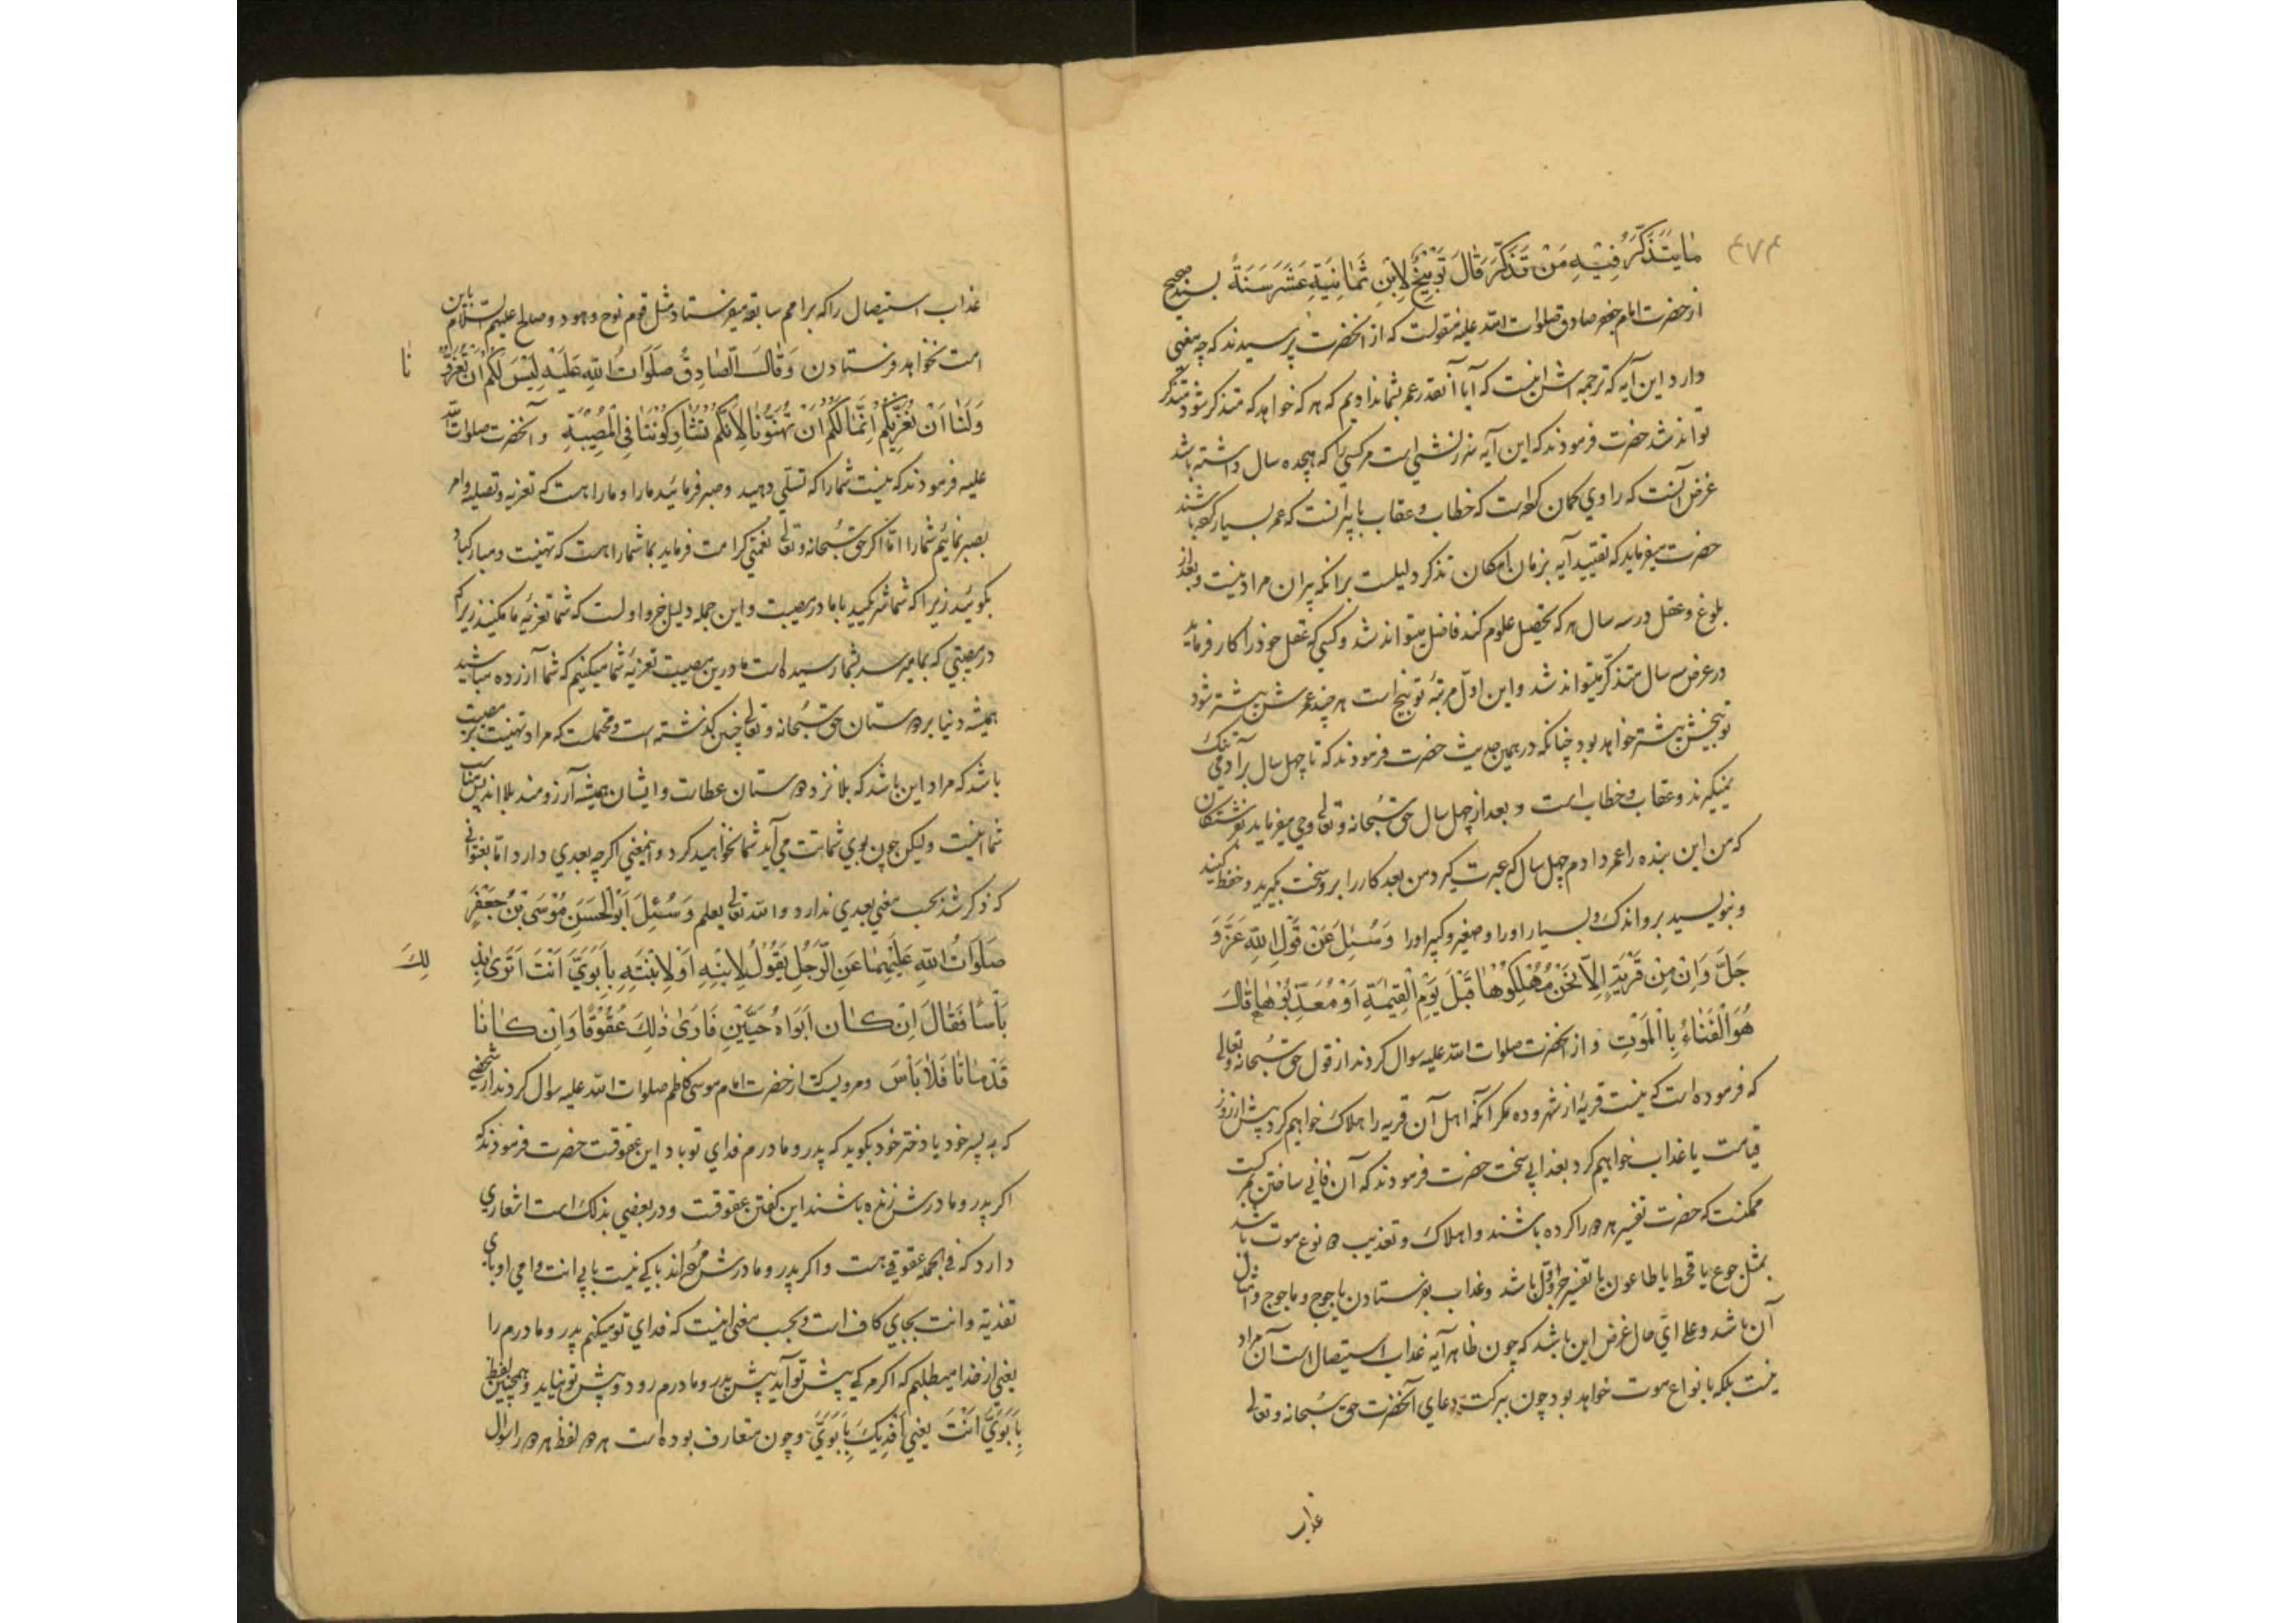 ۴۷۴
مَا يَتَذَكَّرُ فِيْهِ مَنْ تَذَكَّرَ قَالَ تَوْبِيْخٌ لِابْنِ ثَمَانِيَةَ عَشَرَ سَنَةً بسند صحيح
از حضرت امام جعفر صادق صلوات الله عليه منقولست كه از انحضرت پرسيدند كه چه معني
دارد اين آيه كه ترجمه اش اينست كه آيا آنقدر عمر بشما نداديم كه هر كه خواهد كه متذكر شود متذكر
تواند شد حضرت فرمودند كه اين آيه سرزنشي است مر كسي را كه هيجده سال داشته باشد
غرض آنست كه راوي كمان كرده است كه خطاب و عقاب با پيرانست كه عمر بسيار كرده باشند
حضرت ميفرمايد كه تقييد آيه بزمان امكان تذكر دليلست بر انكه پيران مراد نيست و بعد از
بلوغ و عقل در سه سال هر كه تحصيل علوم كند فاضل ميتواند شد و كسي كه عقل خود را كار فرمايد
در عرض سه سال متذكّر ميتواند شد و اين اوّل مرتبهٔ توبيخ است هر چند عمرش بيشتر شود
توبيخش بيشتر خواهد بود چنانكه در همين حديث حضرت فرمودند كه تا چهل سال بر آدمي تنك
نميكيرند و عقاب و خطاب است و بعد از چهل سال حق سُبحانه و تعالى وحي ميفرمايد بفرشتكان
كه من اين بنده را عمر دادم چهل سال كه عبرت كيرد من بعد كار را برو سخت بكيريد و حفظ كنيد
و بنويسيد بر و اندك و بسيار او را و صغير و كبير او را وَ سُئِلَ عَنْ قَوْلِ اللهِ عَزَّ وَ
جَلَّ وَ اِنْ مِنْ قَرْيَةٍ اِلَّا نَحْنُ مُهْلِكُوْهَا قَبْلَ يَوْمِ الْقِيٰمَةِ اَوْ مُعَذِّبُوْهَا قَالَ
هُوَ الْفَنَاءُ بِالْمَوْتِ و از انحضرت صلوات الله عليه سوال كردند از قول حق سُبحانه و تعالى
كه فرموده است كه نيست قريهٔ از شهر و ده مكر آنكه اهل آن قريه را هلاك خواهيم كرد پيش از روز
قيامت يا عذاب خواهيم كرد بعذابي سخت حضرت فرمودند كه آن فاني ساختن بمركست
ممكنست كه حضرت تفسير هر دو را كرده باشند و اهلاك و تعذيب دو نوع موت باشد
بمثل جوع يا قحط يا طاعون يا تفسير جزو اوّل باشد و عذاب بفرستادن ياجوج و ماجوج و امثال
آن باشد و على ايّ حال غرض اين باشد كه چون ظاهر آيه عذاب استيصال است آن مراد
نيست بلكه بانواع موت خواهد بود چون ببركت دعاي آنحضرت حق سُبحانه و تعالى
عذاب
عذاب استيصال را كه بر امم سابقه ميفرستاد مثل قوم نوح و هود و صالح عليهم السّلام باين
امت نخواهد فرستادن وَ قَالَ الصَّادِقُ صَلَوَاتُ اللهِ عَلَيْهِ لَيْسَ لَكُمْ اَنْ تُعَزُّوْ
نَا
وَ لَنَا اَنْ نُعَزِّيَكُمْ اِنَّمَا لَكُمْ اَنْ تُهَنُّوْنَا لِاَنَّكُمْ تُشَارِكُوْنَنَا فِى الْمُصِيْبَةِ و آنحضرت صلوات الله
عليه فرمودند كه نيست شما را كه تسلّي دهيد و صبر فرمائيد ما را و ما را هست كه تعزيه و تصليه و امر
بصبر نمائيم شما را امّا اكر حق سُبحانه و تعالى نعمتي كرامت فرمايد بما شما را هست كه تهنيت و مباركباد
بكوئيد زيرا كه شما شريكيد با ما در مصيبت و اين جمله دليل جزو اولست كه شما تعزيه ما مكنيد زيرا كه
در مصيبتي كه بما ميرسد بشما رسيده است ما درين مصيبت تعزيهٔ شما ميكنيم كه شما آزرده مباشيد
هميشه دنيا بر دوستان حق سُبحانه و تعالى چنين كذشته است و محتملست كه مراد تهنيت بر مصيبت
باشد كه مراد اين باشد كه بلا نزد دوستان عطاست و ايشان هميشه آرزومند بلا اند پس مناسب
شما اينست وليكن چون بوي شماتت مي آيد شما نخواهيد كرد و اينمعني اكرچه بعدي دارد امّا بعنواني
كه ذكر شد بحسب معني بعدي ندارد و الله تعالى يعلم وَ سُئِلَ اَبُو الْحَسَنِ مُوْسَى بْنُ جَعْفَرٍ
صَلَوَاتُ اللهِ عَلَيْهِمَا عَنِ الرَّجُلِ يَقُوْلُ لِابْنِهِ اَوْ لِابْنَتِهِ بِاَبَوَيَّ اَنْتَ اَتَرٰى بِذٰ
لِكَ
بَأْسًا فَقَالَ اِنْ كَانَ اَبَوَاهُ حَيَّيْنِ فَاَرٰى ذٰلِكَ عُقُوْقًا وَ اِنْ كَانَا
قَدْ مَاتَا فَلَا بَأْسَ و مرويست از حضرت امام موسى كاظم صلوات الله عليه سوال كردند از شخصي
كه به پسر خود يا دختر خود بكويد كه پدر و مادرم فداي تو باد اين عقوقست حضرت فرمودند كه
اكر پدر و مادرش زنده باشند اين كفتن عقوقست و در بعضي بذلك است اشعاري
دارد كه في الجمله عقوقي هست و اكر پدر و مادرش مرده اند باكي نيست بابي انت و امي او باي
تفديه و انت بجاي كاف است و بحسب معني اينست كه فداي تو ميكنم پدر و مادرم را
يعني از خدا ميطلبم كه اكر مركي پيش تو آيد پيش پدر و مادرم رود و پيش تو نيايد و همچنين لفظ
بِاَبَوَيَّ اَنْتَ يعني اَفْدِيْكَ بِاَبَوَيَّ و چون متعارف بوده است هر دو لفظ هر دو را سوال